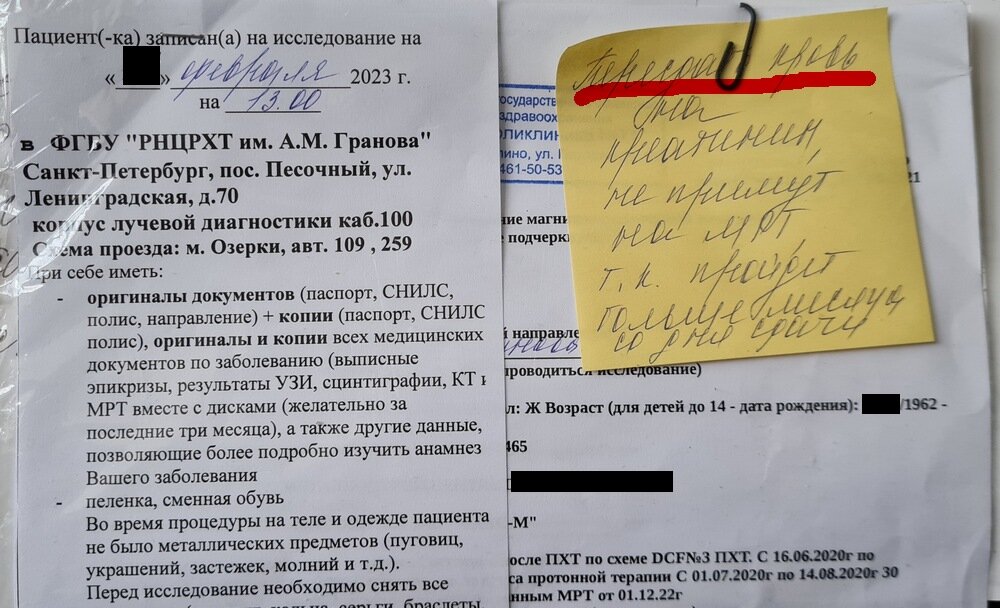 Пациент(-ка) записан(а) на исследование на
« » февраля 2023 г.
на 13.00
в ФГБУ "РНЦРХТ им. А.М. Гранова"
Санкт-Петербург, пос. Песочный, ул.
Ленинградская, д.70
корпус лучевой диагностики каб.100
Схема проезда: м. Озерки, авт. 109 , 259
При себе иметь:
- оригиналы документов (паспорт, СНИЛС,
полис, направление) + копии (паспорт, СНИЛС
полис), оригиналы и копии всех медицинских
документов по заболеванию (выписные
эпикризы, результаты УЗИ, сцинтиграфии, КТ и
МРТ вместе с дисками (желательно за
последние три месяца), а также другие данные,
позволяющие более подробно изучить анамнез
Вашего заболевания
- пеленка, сменная обувь
Во время процедуры на теле и одежде пациента
не было металлических предметов (пуговиц,
украшений, застежек, молний и т.д.).
Перед исследование необходимо снять все
серьги, браслеты,
Пересдать кровь
на
креатинин,
не примут
на МРТ
т.к. пройдет
больше месяца
со дня сдачи
государств
здравоохра
ПОЛИКЛИН
лино, ул.
461-50-53
21
ние магни
е подчерки
й направле
проводиться исследование)
л: Ж Возраст (для детей до 14 - дата рождения): /1962 -
465
-М"
после ПХТ по схеме DCF№3 ПХТ. С 16.06.2020г по
са протонной терапии С 01.07.2020г по 14.08.2020г 30
анным МРТ от 01.12.22г